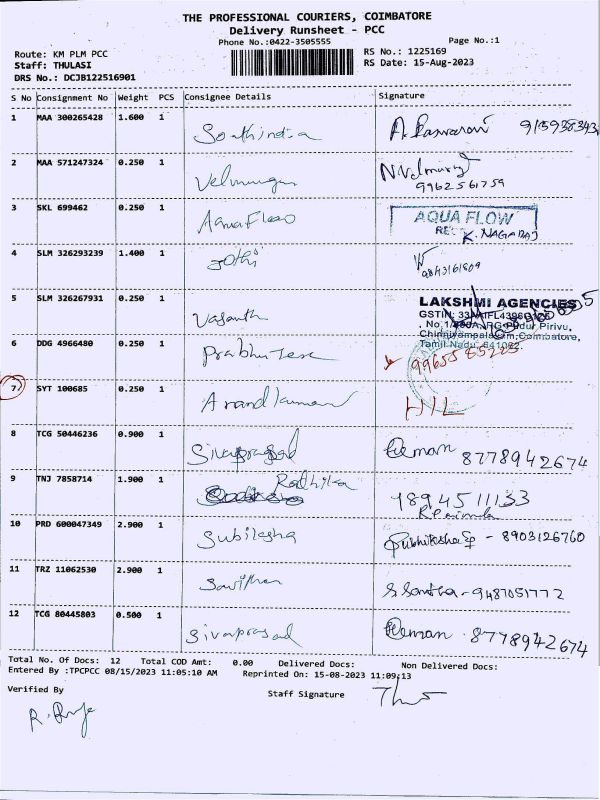 THE PROFESSIONAL COURIERS, COIMBATORE
Delivery Runsheet - PCC
Phone No.:0422-3505555 Page No.:1
Route: KM PLM PCC RS No.: 1225169
Staff: THULASI RS Date: 15-Aug-2023
DRS No.: DCJB122516901
S No Consignment No Weight PCS Consignee Details Signature
1 MAA 300265428 1.600 1 Southindia A.
2 MAA 571247324 0.250 1 Velmurugan
9962561759
3 SKL 699462 0.250 1 AquaFlow AQUA FLOW
K. NAGARAJ
4 SLM 326293239 1.400 1 Jothi
9843161809
5 SLM 326267931 0.250 1 Vasanth LAKSHMI AGENCIES
Chinniyampalayam, Coimbatore,
Tamil Nadu. 641062.
6 DDG 4966480 0.250 1 Prabhu
7 SYT 100685 0.250 1 Anandkumar HIL
8 TCG 50446236 0.900 1 Sivaprasad 8778942674
9 TNJ 7858714 1.900 1 Radhika 9894511133
10 PRD 600047349 2.900 1 Subiksha - 8903126760
11 TRZ 11062530 2.900 1 - 9487051772
12 TCG 80445803 0.500 1 Sivaprasad 8778942674
Total No. Of Docs: 12 Total COD Amt: 0.00 Delivered Docs: Non Delivered Docs:
Entered By :TPCPCC 08/15/2023 11:05:10 AM Reprinted On: 15-08-2023 11:09:13
Verified By Staff Signature